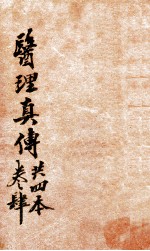 醫理真傳
共四本
卷肆